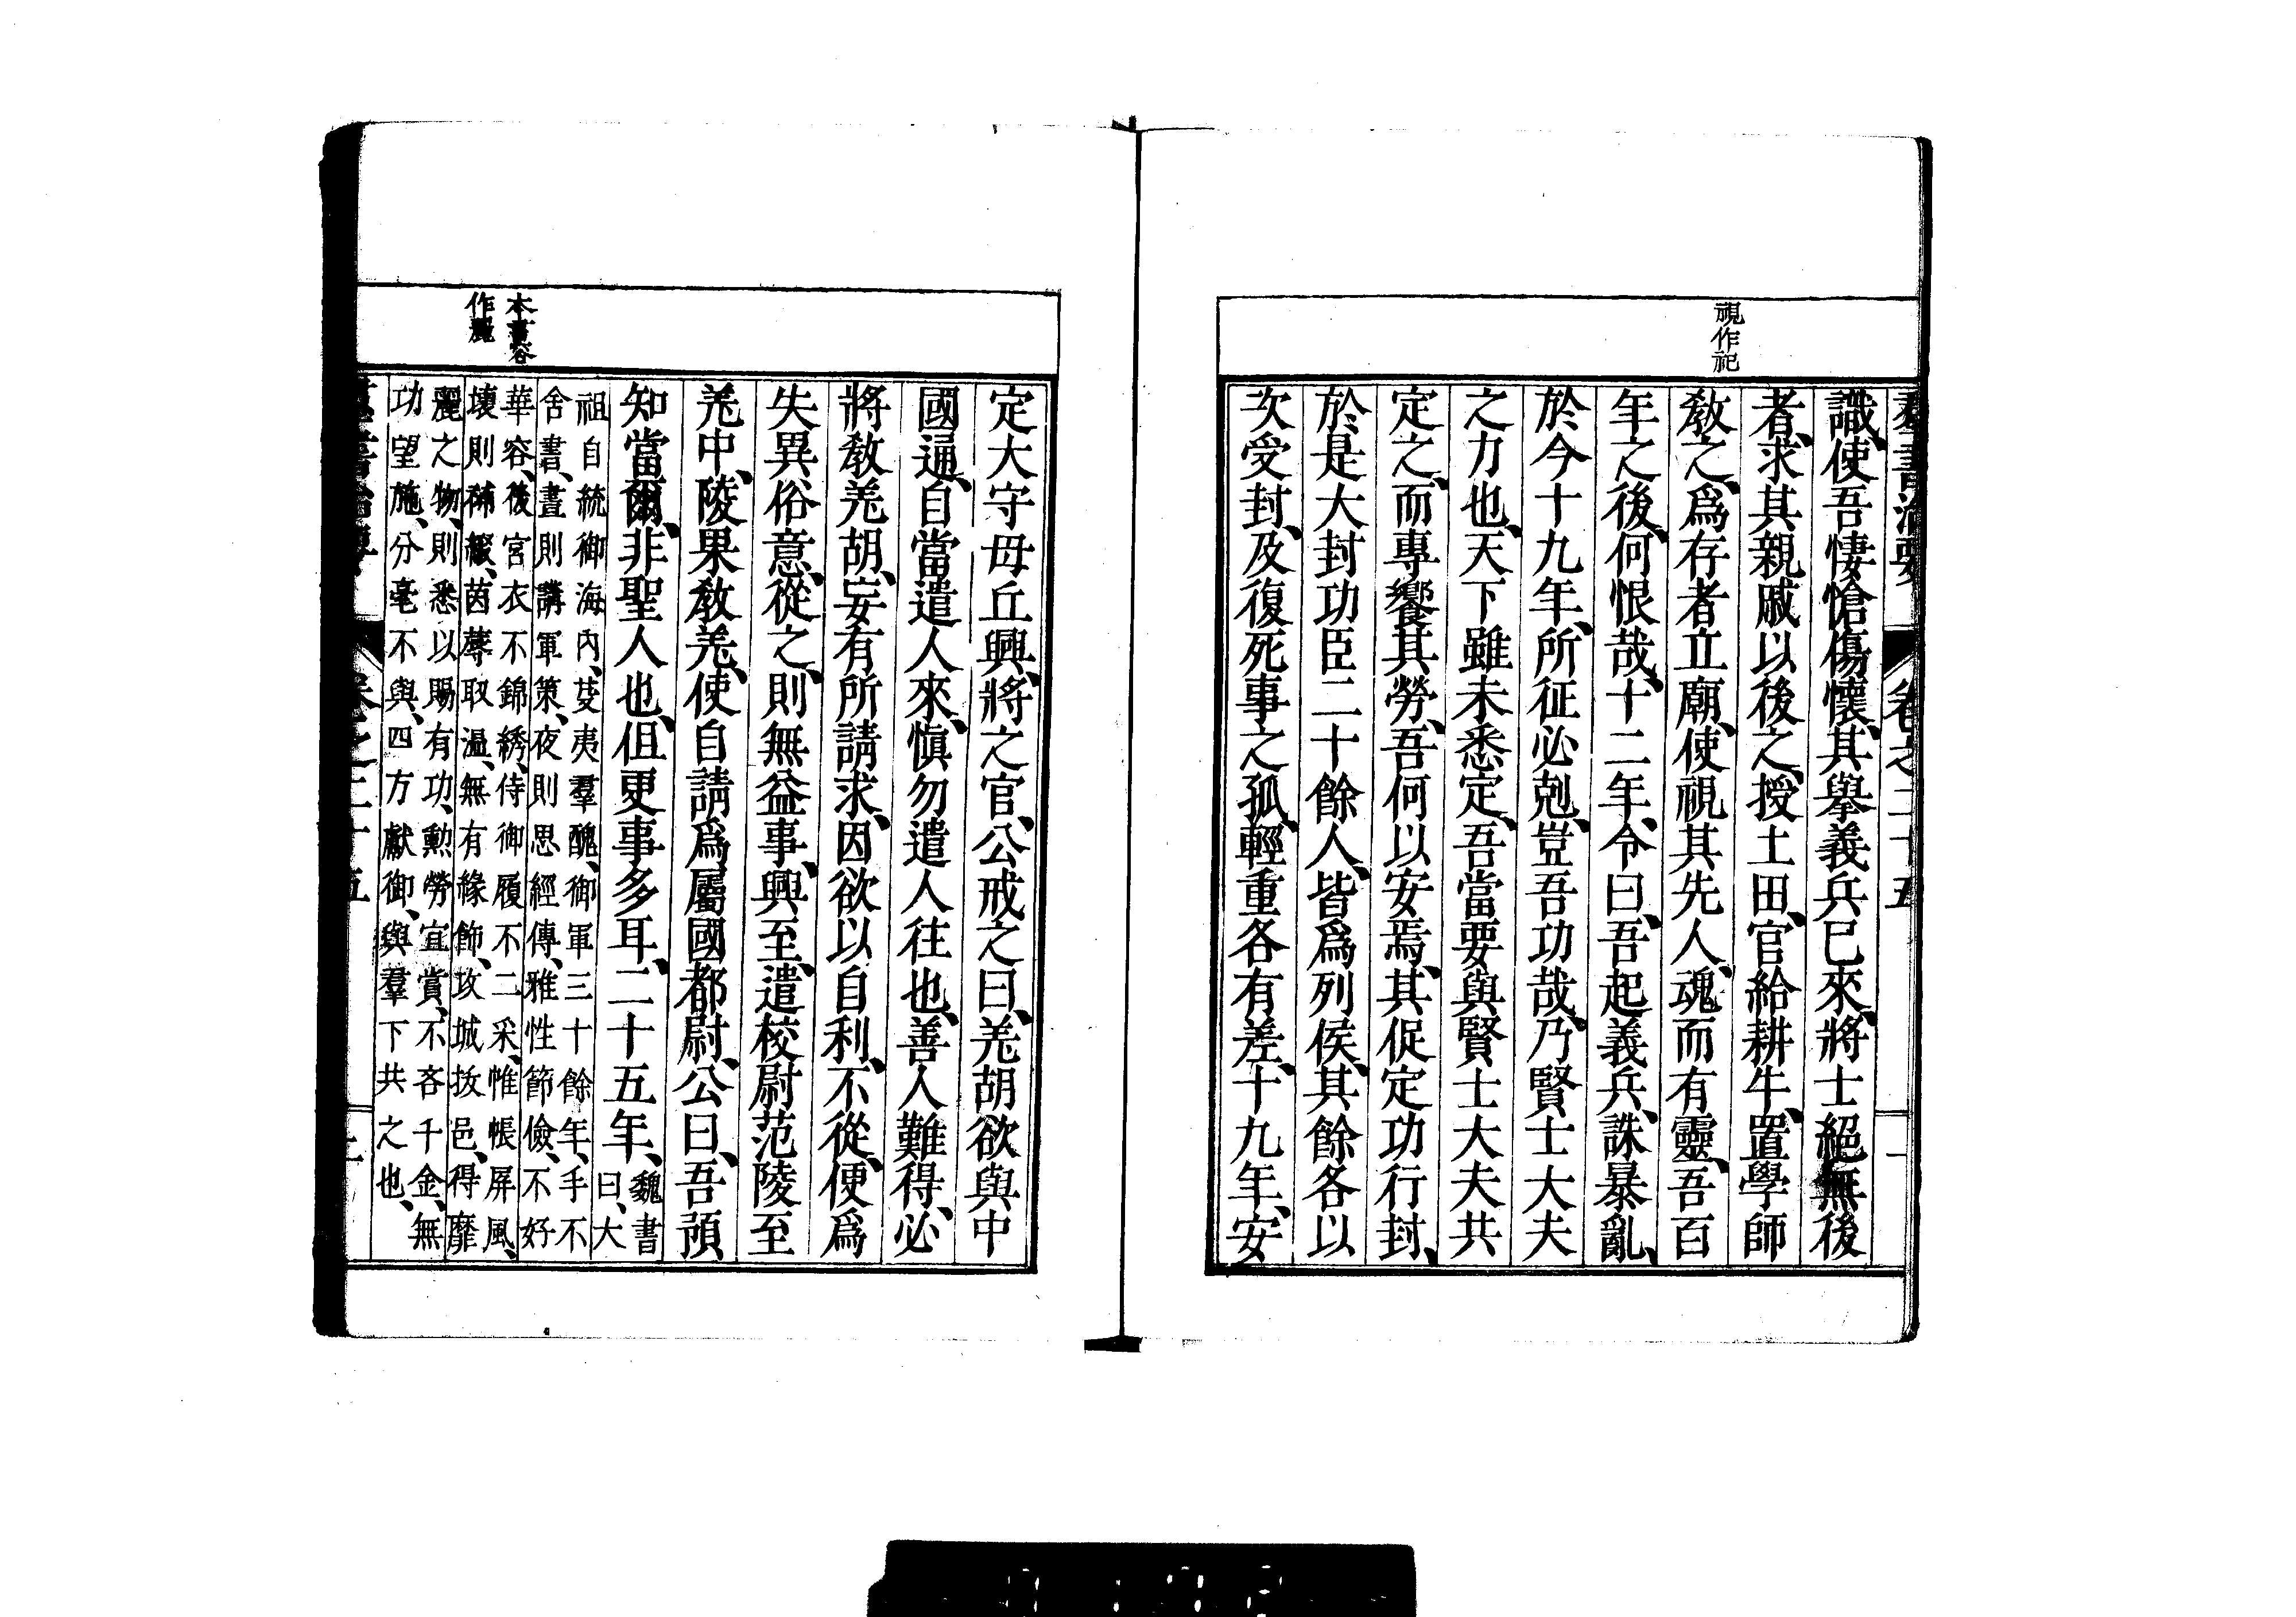 視作祀
羣書治要　卷之二十五
識、使吾悽愴傷懷、其擧義兵已來、將士絕無後
者、求其親戚以後之、授土田、官給耕牛、置學師
敎之、爲存者立廟、使視其先人、魂而有靈、吾百
年之後、何恨哉、十二年、令曰、吾起義兵、誅暴亂、
於今十九年、所征必剋、豈吾功哉、乃賢士大夫
之力也、天下雖未悉定、吾當要與賢士大夫共
定之、而專饗其勞、吾何以安焉、其促定功行封、
於是大封功臣二十餘人、皆爲列侯、其餘各以
次受封、及復死事之孤、輕重各有差、十九年、安
本書容
作麗
定大守毋丘興、將之官、公戒之曰、羌胡欲與中
國通、自當遣人來、愼勿遣人往也、善人難得、必
將敎羌胡、妄有所請求、因欲以自利、不從、便爲
失異俗意、從之、則無益事、興至、遣校尉范陵至
羌中、陵果敎羌、使自請爲屬國都尉、公曰、吾預
知當爾、非聖人也、但更事多耳、二十五年、魏書
曰、大
祖自統御海內、芟夷羣醜、御軍三十餘年、手不
舍書、晝則講軍策、夜則思經傳、雅性節儉、不好
華容、後宮衣不錦綉、侍御履不二采、帷帳屏風、
壞則補綴、茵蓐取温、無有緣飾、攻城拔邑、得靡
麗之物、則悉以賜有功、勳勞宜賞、不吝千金、無
功望施、分毫不與、四方獻御、與羣下共之也、